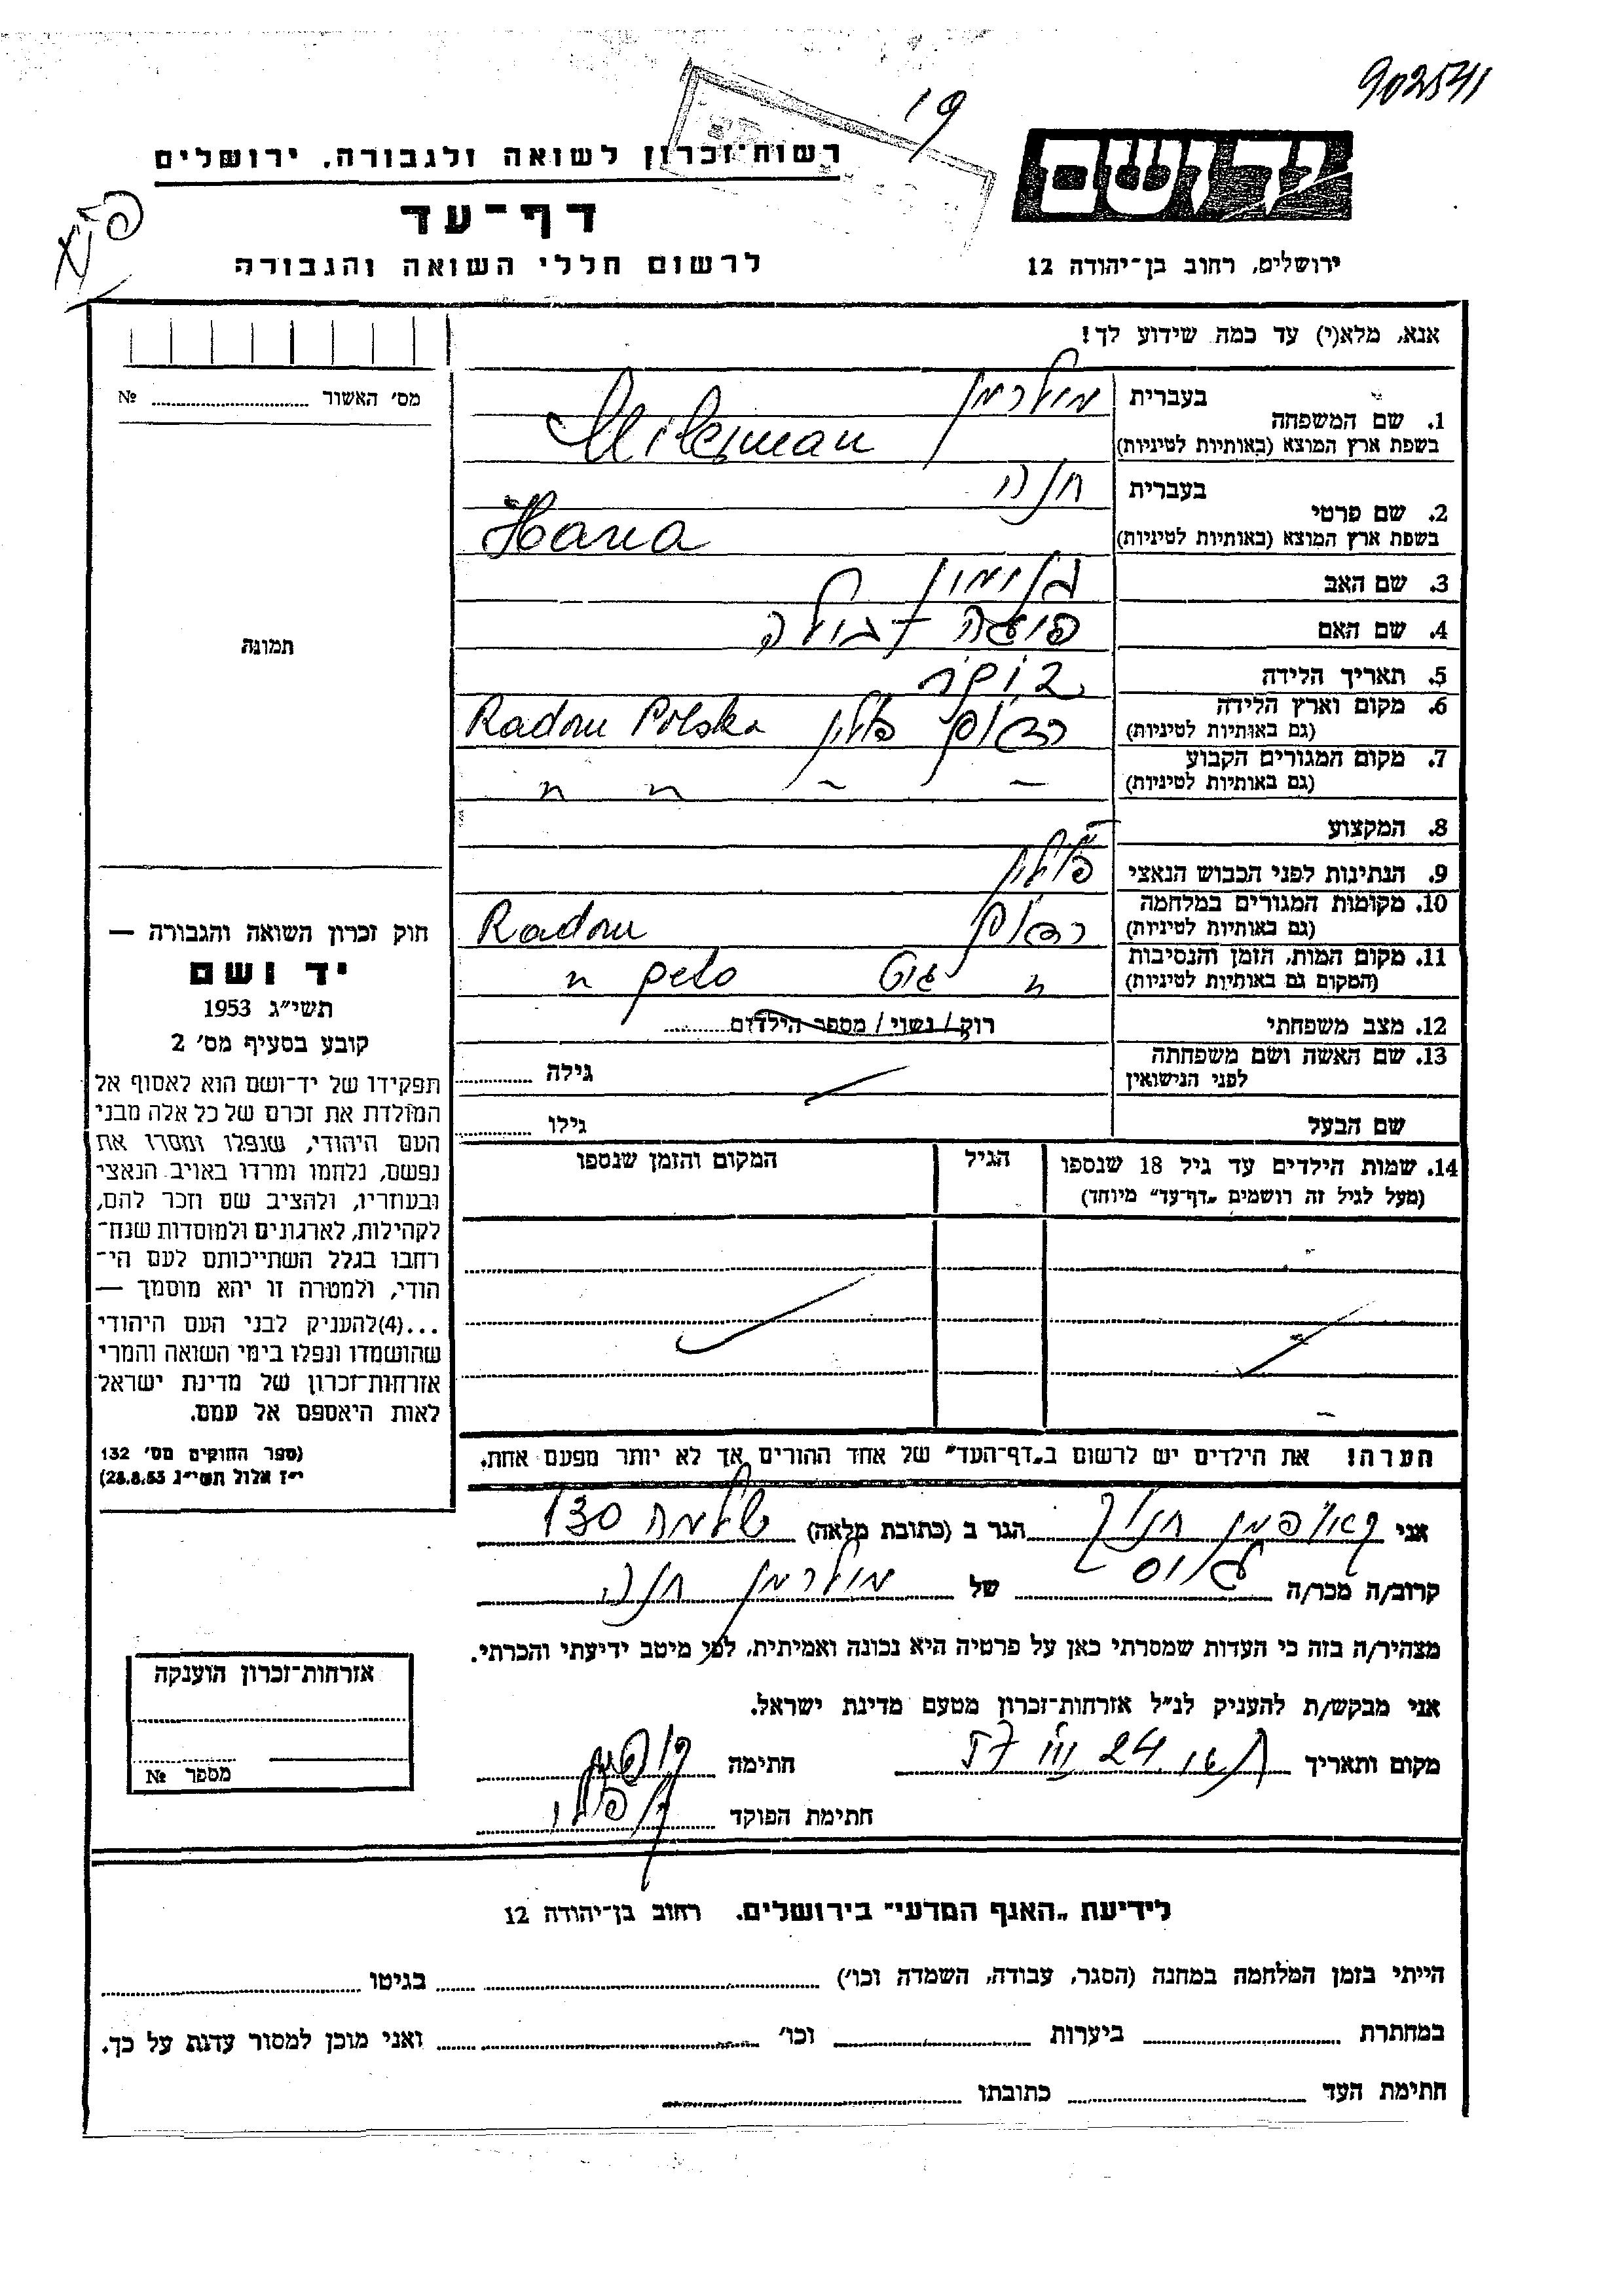 902541
19
רשות־זכרון לשואה ולגבורה, ירושלים
יד ושם
דף־עד
לרשום חללי השואה והגבורה
ירושלים, רחוב בן־יהודה 12
אנא, מלא(י) עד כמה שידוע לך!
מס׳ האשור № 
1. שם המשפחה
בעברית
בשפת ארץ המוצא (באותיות לטיניות)
2. שם פרטי
בעברית חנה
בשפת ארץ המוצא (באותיות לטיניות) Hana
3. שם האב
4. שם האם
תמונה
5. תאריך הלידה
6. מקום וארץ הלידה
(גם באותיות לטיניות) רדום פולין Radom Polska
7. מקום המגורים הקבוע
(גם באותיות לטיניות) " "
8. המקצוע
9. הנתינות לפני הכבוש הנאצי פולין
10. מקומות המגורים במלחמה
(גם באותיות לטיניות) רדום Radom
11. מקום המות, הזמן והנסיבות
(המקום גם באותיות לטיניות) " גטו "
12. מצב משפחתי רוק/נשוי/מספר הילדים
13. שם האשה ושם משפחתה
לפני הנישואין
גילה
שם הבעל גילו
14. שמות הילדים עד גיל 18 שנספו
(מעל לגיל זה רושמים „דף־עד״ מיוחד)
הגיל
המקום והזמן שנספו
הערה! את הילדים יש לרשום ב„דף־העד״ של אחד ההורים אך לא יותר מפעם אחת.
חוק זכרון השואה והגבורה —
יד ושם
תשי״ג 1953
קובע בסעיף מס׳ 2
תפקידו של יד־ושם הוא לאסוף אל
המולדת את זכרם של כל אלה מבני
העם היהודי, שנפלו ומסרו את
נפשם, נלחמו ומרדו באויב הנאצי
ובעוזריו, ולהציב שם וזכר להם,
לקהילות, לארגונים ולמוסדות שנח־
רבו בגלל השתייכותם לעם הי־
הודי, ולמטרה זו יהא מוסמך —
...(4) להעניק לבני העם היהודי
שהושמדו ונפלו בימי השואה והמרי
אזרחות־זכרון של מדינת ישראל
לאות היאספם אל עמם.
(ספר החוקים מס׳ 132
י״ז אלול תשי״ג 28.8.53)
אני הגר ב (כתובת מלאה) שלמה 130
קרוב/ה מכר/ה של חנה
מצהיר/ה בזה כי העדות שמסרתי כאן על פרטיה היא נכונה ואמיתית, לפי מיטב ידיעתי והכרתי.
אני מבקש/ת להעניק לנ״ל אזרחות־זכרון מטעם מדינת ישראל.
מקום ותאריך 24 57 חתימה
חתימת הפוקד
אזרחות־זכרון הוענקה
מספר №
לידיעת „האגף המדעי״ בירושלים. רחוב בן־יהודה 12
הייתי בזמן המלחמה במחנה (הסגר, עבודה, השמדה וכו׳) בגיטו
במחתרת ביערות וכו׳ ואני מוכן למסור עדות על כך.
חתימת העד כתובתו